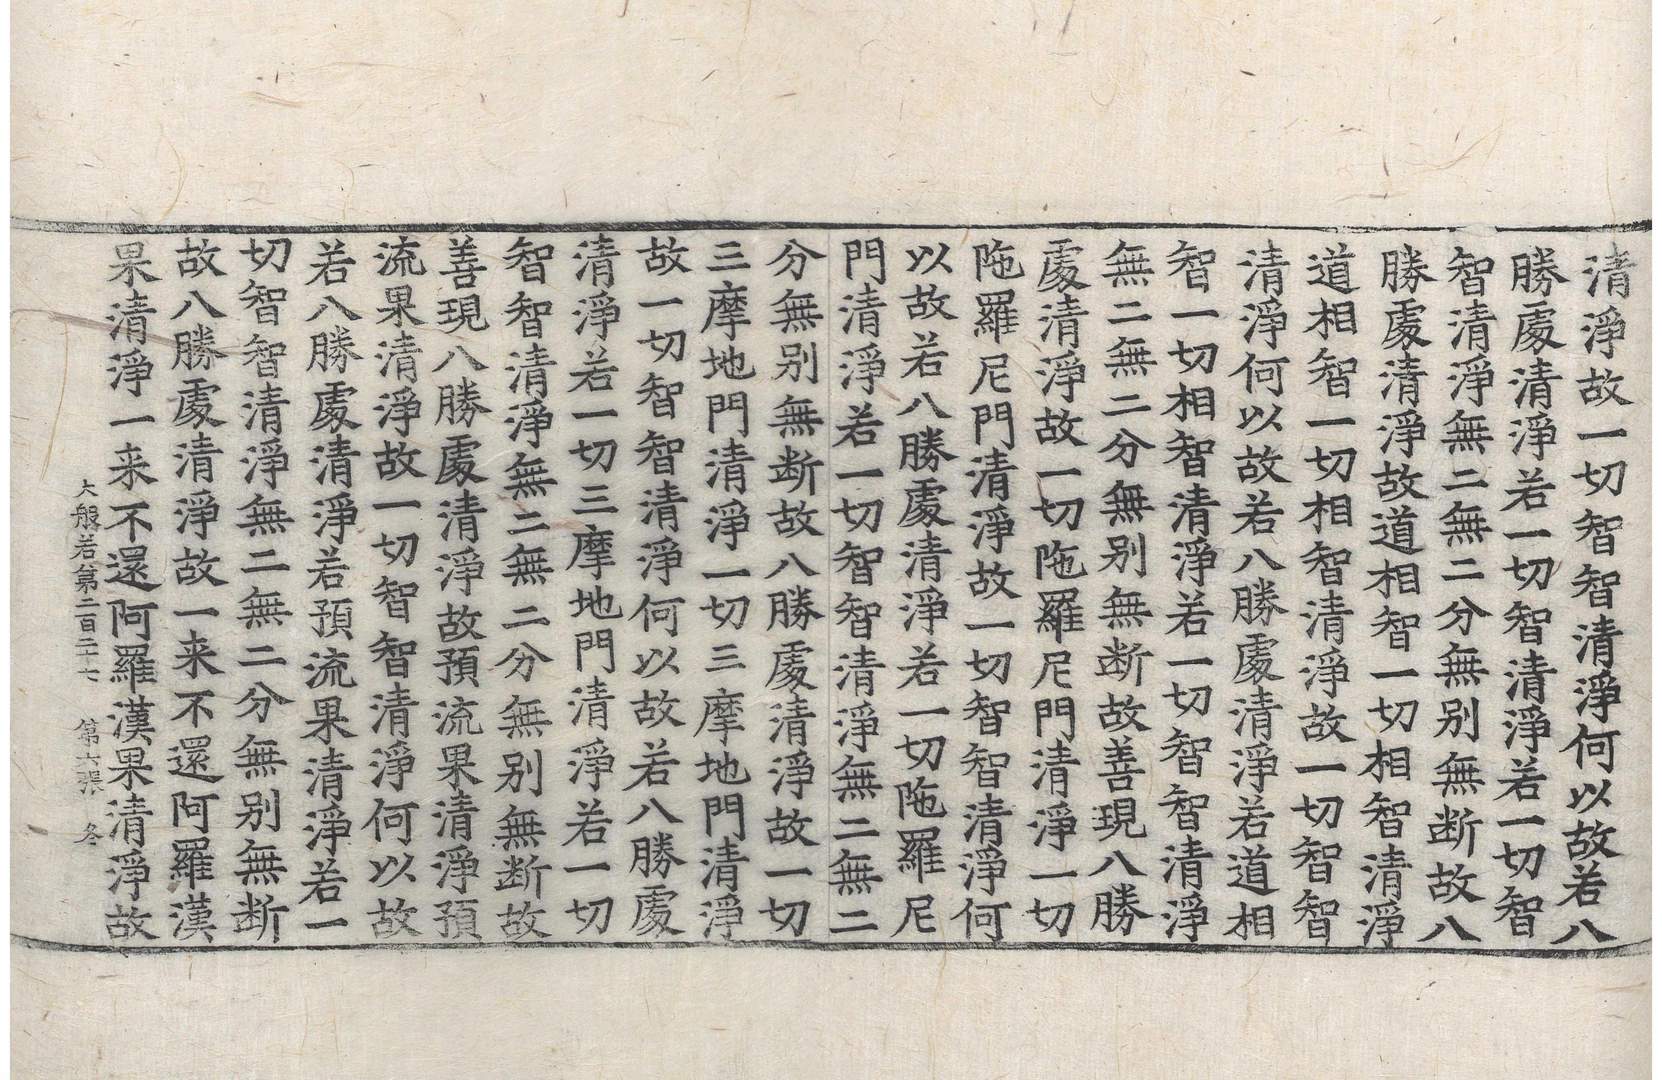 清淨故一切智智清淨何以故若八
勝處清淨若一切智清淨若一切智
智清淨無二無二分無别無断故八
勝處清淨故道相智一切相智清淨
道相智一切相智清淨故一切智智
清淨何以故若八勝處清淨若道相
智一切相智清淨若一切智智清淨
無二無二分無别無断故善現八勝
處清淨故一切陁羅尼門清淨一切
陁羅尼門清淨故一切智智清淨何
以故若八勝處清淨若一切陁羅尼
門清淨若一切智智清淨無二無二
分無别無断故八勝處清淨故一切
三摩地門清淨一切三摩地門清淨
故一切智智清淨何以故若八勝處
清淨若一切三摩地門清淨若一切
智智清淨無二無二分無别無断故
善現八勝處清淨故預流果清淨預
流果清淨故一切智智清淨何以故
若八勝處清淨若預流果清淨若一
切智智清淨無二無二分無别無断
故八勝處清淨故一来不還阿羅漢
果清淨一来不還阿羅漢果清淨故
大般若第二百二十七 第六張 冬